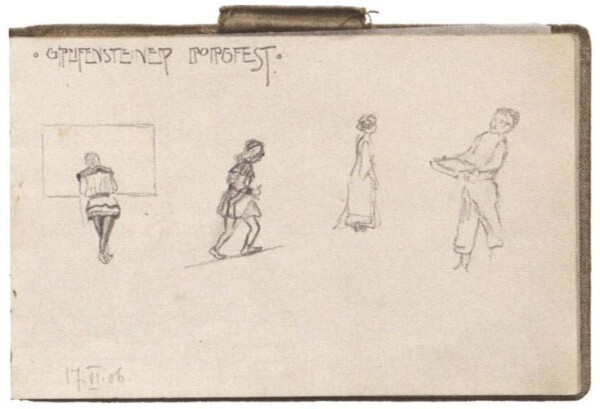 · GREIFENSTEINER BURGFEST ·
17.VI.06.